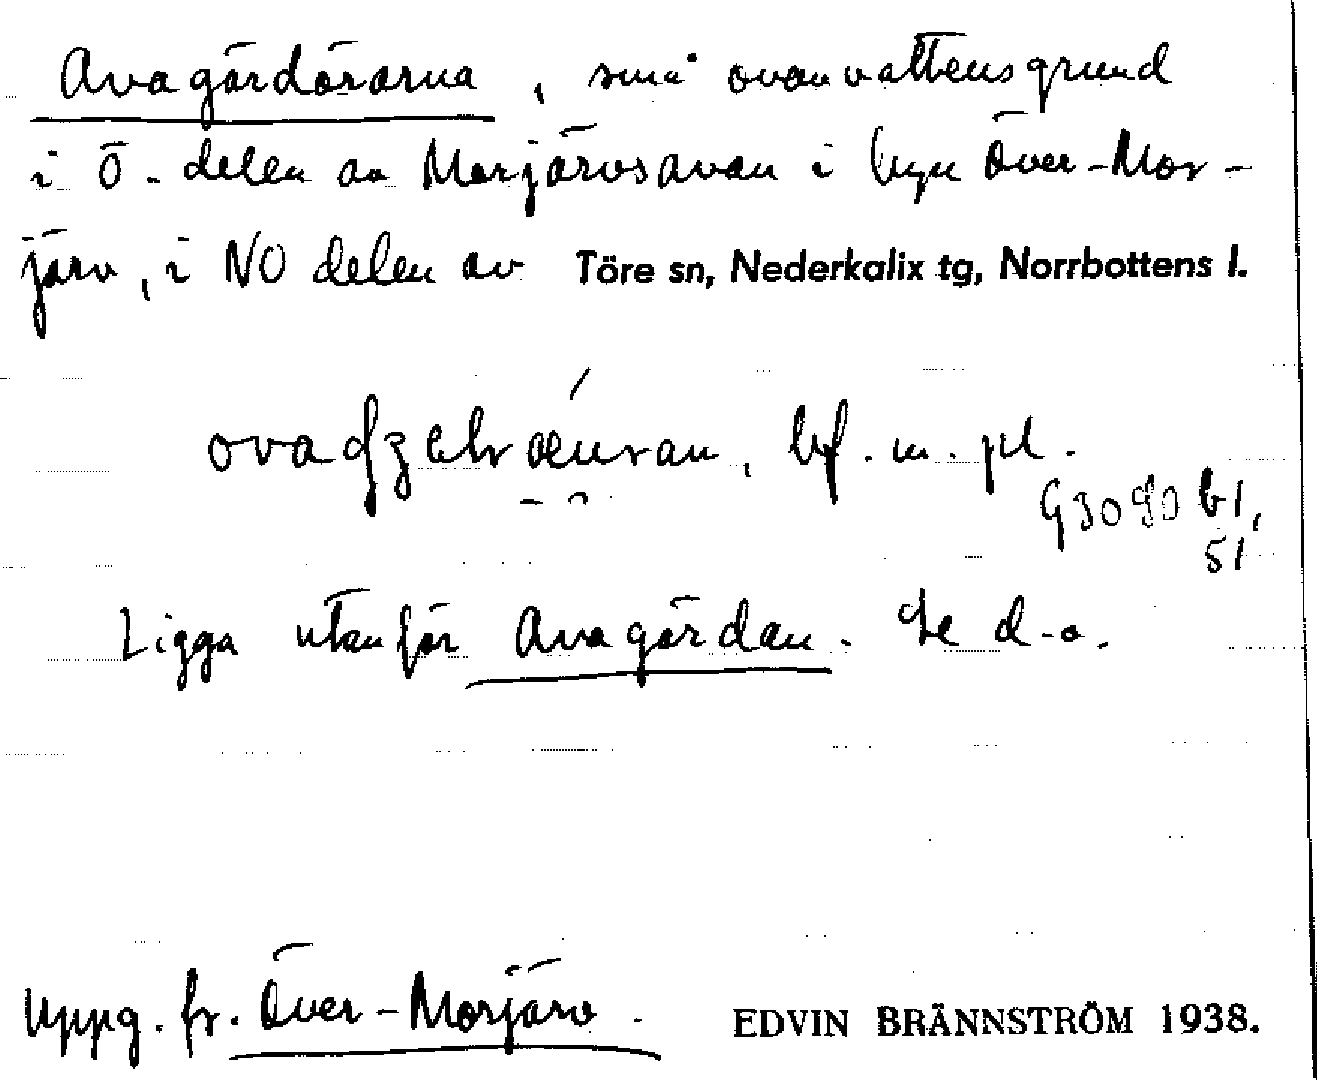 Avagärdörarna, små ovanvattensgrund
i Ö. delen av Morjärvsavan i byn Över-Mor-
järv, i NO delen av Töre sn, Nederkalix tg, Norrbottens l.
bf. m. pl.
51
Ligga utanför Avagärdan. Se d.o.
Uppg. fr. Över-Morjärv. EDVIN BRÄNNSTRÖM 1938.